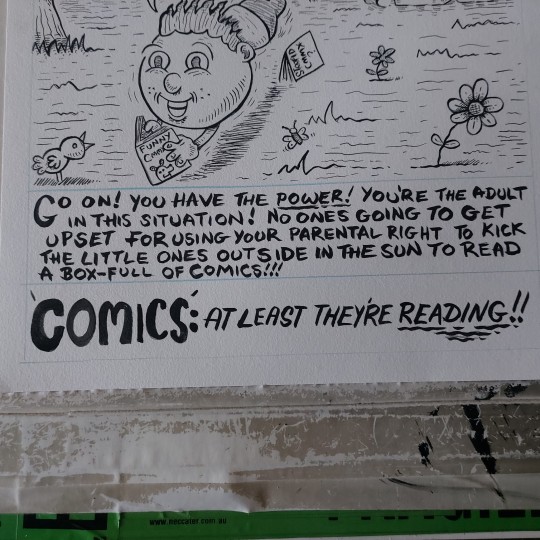 STUPID
COMIC
FUNNY
COMIC
GO ON! YOU HAVE THE POWER! YOU'RE THE ADULT
IN THIS SITUATION! NO ONES GOING TO GET
UPSET FOR USING YOUR PARENTAL RIGHT TO KICK
THE LITTLE ONES OUTSIDE IN THE SUN TO READ
A BOX-FULL OF COMICS!!!
'COMICS': AT LEAST THEY'RE READING!!